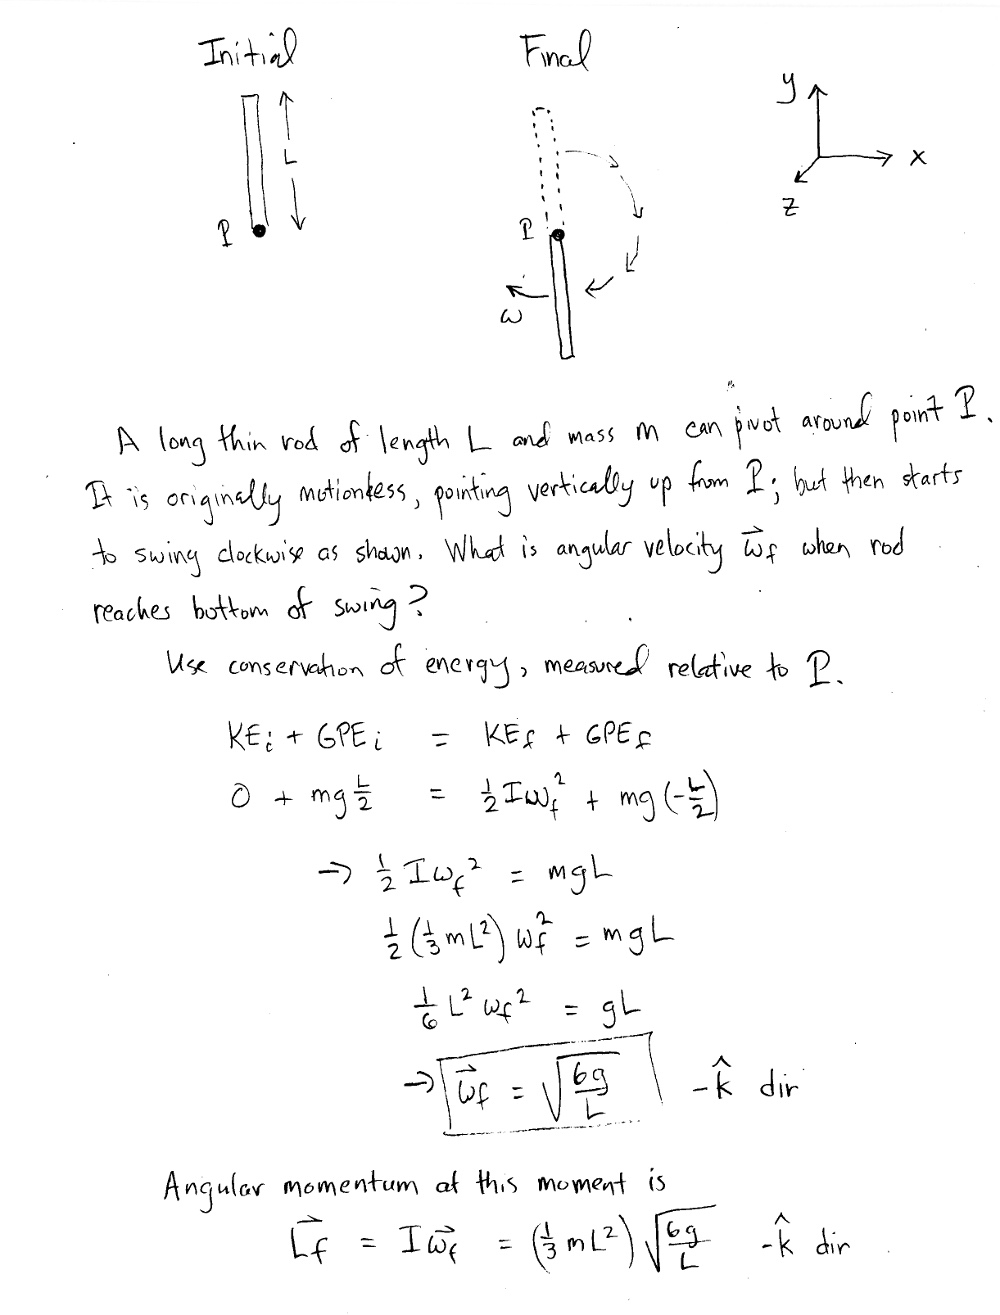 Initial
Final
L
P
P
ω
y
x
z
A long thin rod of length L and mass m can pivot around point P.
It is originally motionless, pointing vertically up from P; but then starts
to swing clockwise as shown. What is angular velocity ω⃗f when rod
reaches bottom of swing?
Use conservation of energy, measured relative to P.
KEi + GPEi = KEf + GPEf
0 + mg L/2 = 1/2 Iωf² + mg (-L/2)
→ 1/2 Iωf² = mgL
1/2 (1/3 mL²) ωf² = mgL
1/6 L² ωf² = gL
→ ω⃗f = √(6g/L) -k̂ dir
Angular momentum at this moment is
L⃗f = Iω⃗f = (1/3 mL²) √(6g/L) -k̂ dir